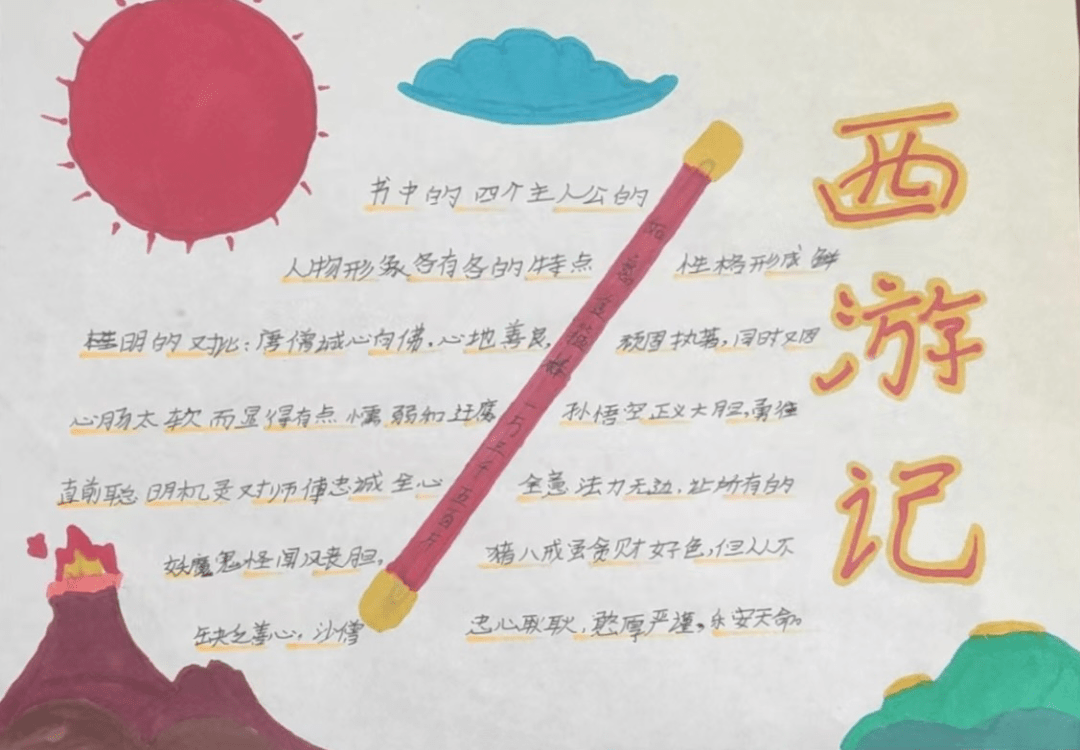 西游记
书中的四个主人公的
人物形象各有各的特点 性格形成鲜
明的对比:唐僧诚心向佛,心地善良, 顽固执著,同时又因
心肠太软而显得有点懦弱和迂腐 孙悟空正义大胆,勇往
直前聪明机灵对师傅忠诚全心 全意法力无边,让所有的
妖魔鬼怪闻风丧胆, 猪八戒虽贪财好色,但从不
缺乏善心,沙僧 忠心耿耿,憨厚严谨,乐安天命。
如意金箍棒一万三千五百斤